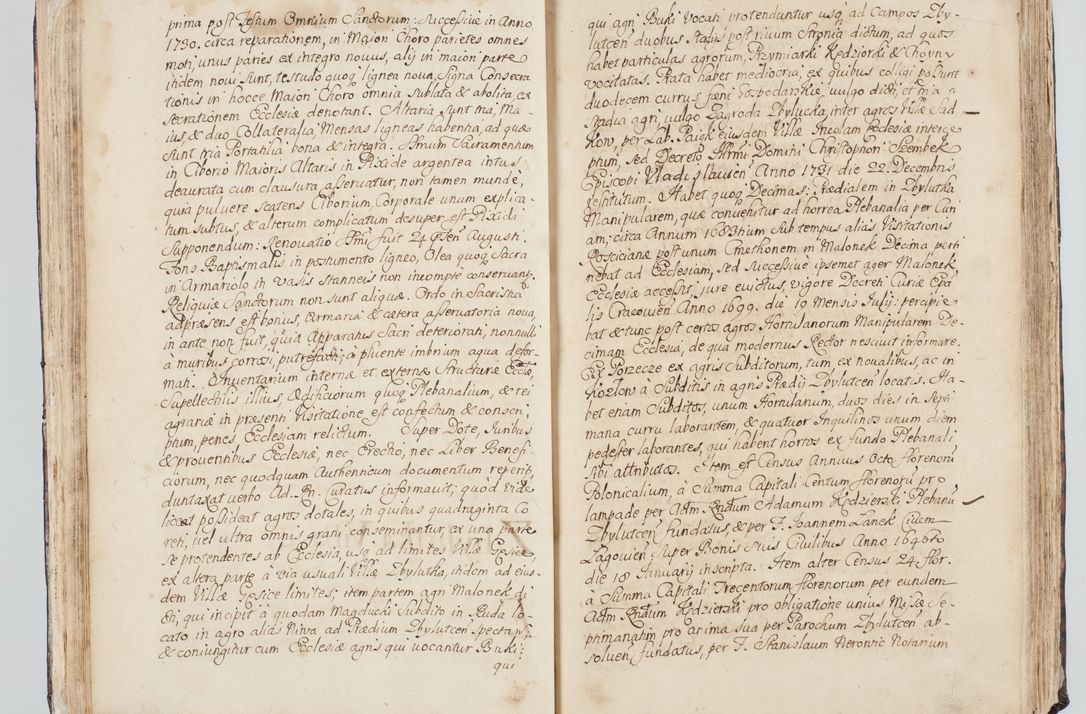 prima post festum Omnium Sanctorum: Successive in Anno
1730. circa reparationem, in Maiori Choro parietes omnes
mon, unus paries ex integro novus, alij in maiori parte
itidem novi sunt, testudo quoq́ lignea nova, Signa Consecra
tionis in hocce Maiori Choro omnia sublata & abolita ex
secrationem Ecclesiæ denotant. Altaria sunt tria, Ma-
ius & duo Collateralia, Mensas ligneas habentia, ad quæ
sunt tria Portatilia bona & integra. Smum Sacramentum
in Ciborio Maioris Altaris in Pixide argentea intus
deaurata cum clausura asservatur, non tamen mundè,
quia pulvere scatens Ciborium, Corporale unum explica-
tum subtus, & alterum complicatum desuper est Pixidi
supponendum: Renovatio Smi fuit 24 Augusti.
Fons Baptismalis in postumento ligneo, Olea quoq́ Sacra
in Armariolo in vasis stanneis non incomptè conservantr.
Reliquiæ Sanctorum non sunt aliquæ. Ordo in Sacristia
ad præsens est bonus Armaria & cætera asservatoria nova,
in ante non fuit, quia Apparatus Sacri deteriorati, nonnulli
à muribus corrosi, putrefacti, à pluente imbrium aqua defor-
mati. Inventarium internæ et externæ Structuræ Eccliæ
Supellectilis illius, Ædificiorum quoq́ Plebanalium, & rei
agrariæ in præsenti Visitatione est confectum & conscri-
ptum, penes Ecclesiam relictum. Super Dote, Iuribus
& proventibus Ecclesiæ, nec Erectio, nec Liber Benefi-
ciorum, nec quodquam Authenticum documentum reperitr,
duntaxat verbo Ad. Rn. Curatus informavit; quòd vide
licet possideat agros dotales, in quibus quadraginta Co
reti, vel ultra omnis grani conseminantur, ex una parte
se protendentes ab Ecclesia, usq́ ad limites Villæ Gęsice,
ex altera parte à via usuali Villæ Zbylutka, itidem ad eius-
dem Villæ Gęsice limites; item partem agri Malonek di
cti, qui incipit à quodam Magducki Subdito in Ruda lo-
cato in agro alias Niwa ad Prædium Zbylutcen Spectan;
& coniungitur cum Ecclesiæ agris qui vocantur Buki:
qui
qui agri Buki vocati protenduntur usq́ ad Campos Zby-
lutcen duobus Staijs post rivum Stronia dictum, ad quos
habet particulas agrorum, Przymiarki Kędziorki & Choyna
vocitatas. Prata habet mediocria, ex quibus colligi possunt
duodecem currus fæni Gospodarskie, vulgo dicti, et tria
Stadia agri, vulgo Zagroda Zbylucka, inter agros Villæ Sad
Kow, per Lab. Paick eiusdem Villæ Incolam Ecclesiæ interce
ptum, sed Decreto Illrmi Domini Christophori Szembek
Episcopi Vladislavien Anno 1731 die 22. Decembris
restitutum. Habet quoq́ Decimas: Prædialem in Zbylutka
Manipularem, quæ convehitur ad horrea Plebanalia per Curi
am; circa Annum 1683tium sub tempus alias Visitationis
Roscicianæ post unum Cmethonem in Malonek Decima perti
nebat ad Ecclesiam, sed successivè ipsemet ager Malonek
Ecclesiæ accessit, jure evictus, vigore Decreti Curiæ Epa
lis Cracovien Anno 1699. die 10 Mensis Iulij: percipie
bat & tunc post certos agros Hortulanorum Manipularem De-
cimam Ecclesia, de qua modernus Rector nescivit informare.
Ex Porzecze ex agris Subditorum, tum ex novalibus, ac in
Kozłow à Subditis in agris Prædij Zbylutcen locatis. Ha-
bet etiam Subditos, unum Hortulanum, duos dies in Septi
mana curru laborantem, & quatuor Inquilinos unum diem
pedester laborantes, qui habent hortos ex fundo Plebanali,
sibi attributos. Item est Census Annuus Octo florenorũ
Polonicalium, à Summa Capitali Centum florenorũ pro
lampade per Adm. Rndum Adamum Kędzierski Plebanũ
Zbylutcen fundatus, & per F. Ioannem Lanek Civem
Lagovien super Bonis suis Civilibus Anno 1646to
die 18 Ianuarij inscripta. Item alter Census 24 flor.
à Summa Capitali Trecentorum florenorum per eundem
Adm Rndum Kędzierski pro obligatione unius Missæ Se-
ptimanatim pro anima sua per Parochum Zbylutcen ab-
solven, fundatus, per F. Stanislaum Neronic Notarium